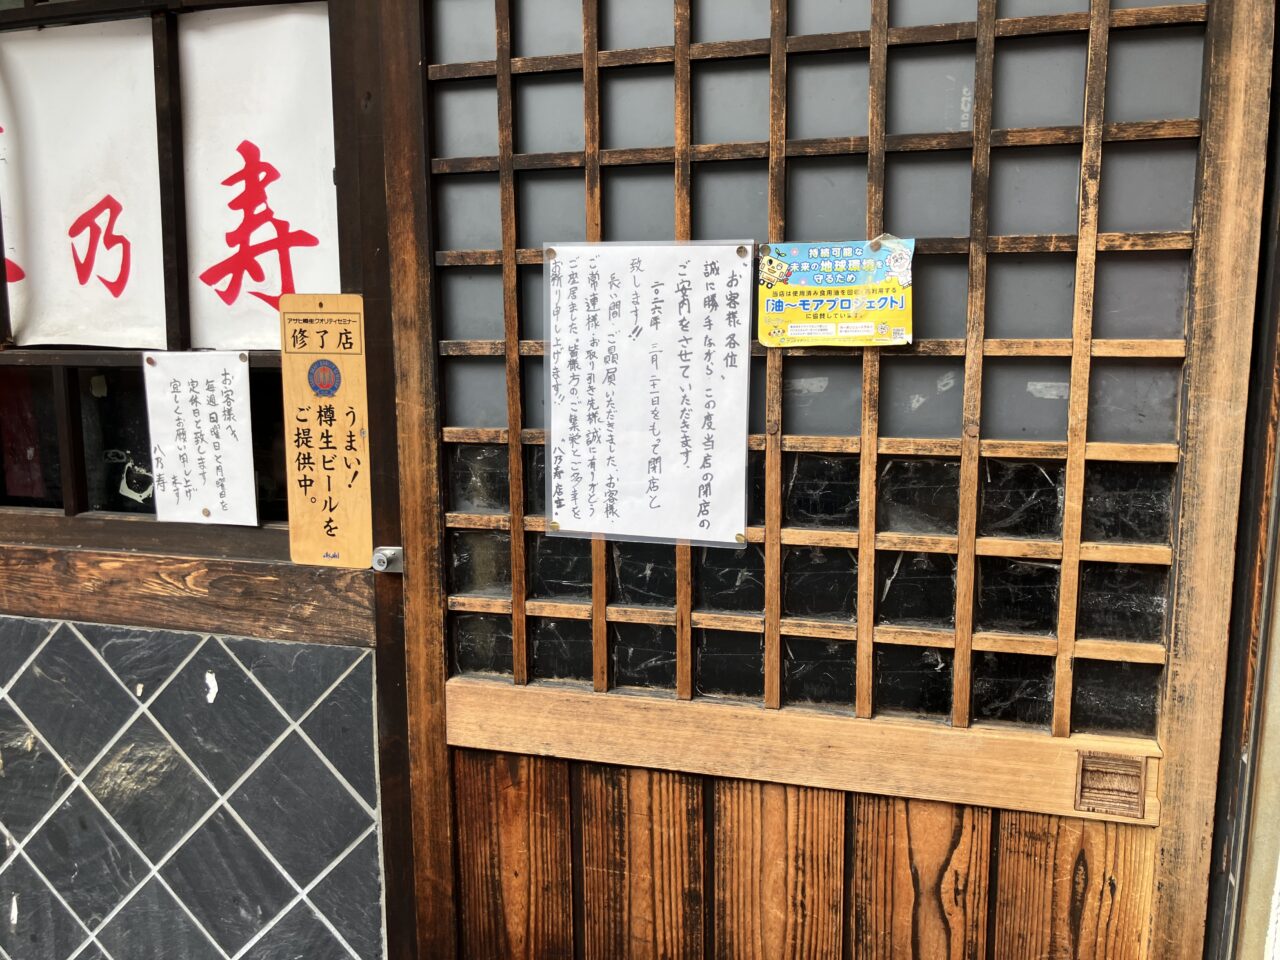 乃
寿
お客様へ、
毎週日曜日と月曜日を
定休日と致します
宜しくお願い申し上げ
ます
八乃寿
アサヒ樽生クオリティセミナー
修了店
うまい！
樽生ビールを
ご提供中。
Asahi
お客様各位、
誠に勝手ながら、この度当店の閉店の
ご案内をさせていただきます。
二〇二六年 三月二十一日をもって閉店と
致します!!
長い間、ご贔屓いただきました、お客様・
ご常連様・お取り引き先様、誠に有りがとう
ございました。皆様方の、ご繁栄とご多幸を
お祈り申し上げます!!
八乃寿 店主
持続可能な
未来の地球環境を
守るため
当店は使用済み食用油を回収、再利用する
「油〜モアプロジェクト」
に協賛しています。